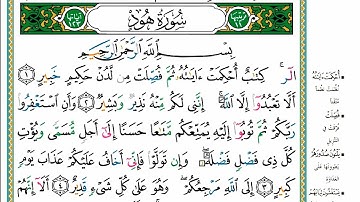 سُورَةُ هُودٍ
ترتيبها ١١
آياتها ١٢٣
بِسْمِ اللَّهِ الرَّحْمَٰنِ الرَّحِيمِ
الٓر ۚ كِتَٰبٌ أُحْكِمَتْ ءَايَٰتُهُۥ ثُمَّ فُصِّلَتْ مِن لَّدُنْ حَكِيمٍ خَبِيرٍ ١
أَلَّا تَعْبُدُوٓا۟ إِلَّا ٱللَّهَ ۚ إِنَّنِى لَكُم مِّنْهُ نَذِيرٌ وَبَشِيرٌ ٢ وَأَنِ ٱسْتَغْفِرُوا۟
رَبَّكُمْ ثُمَّ تُوبُوٓا۟ إِلَيْهِ يُمَتِّعْكُم مَّتَٰعًا حَسَنًا إِلَىٰٓ أَجَلٍ مُّسَمًّى وَيُؤْتِ
كُلَّ ذِى فَضْلٍ فَضْلَهُۥ ۖ وَإِن تَوَلَّوْا۟ فَإِنِّىٓ أَخَافُ عَلَيْكُمْ عَذَابَ يَوْمٍ
كَبِيرٍ ٣ إِلَى ٱللَّهِ مَرْجِعُكُمْ ۖ وَهُوَ عَلَىٰ كُلِّ شَىْءٍ قَدِيرٌ ٤ أَلَآ إِنَّهُمْ